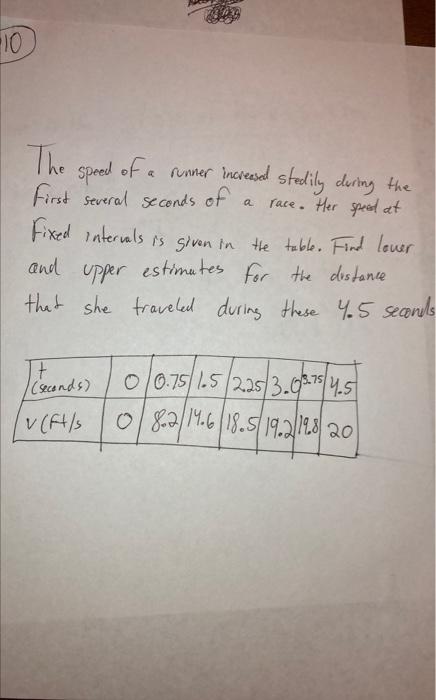 10
The speed of a runner increased stedily during the
First several seconds of a race. Her speed at
Fixed intervals is given in the table. Find lower
and upper estimates for the distance
that she traveled during these 4.5 seconds
t (seconds) 0 0.75 1.5 2.25 3.0 3.75 4.5
v (Ft/s 0 8.2 14.6 18.5 19.2 19.8 20